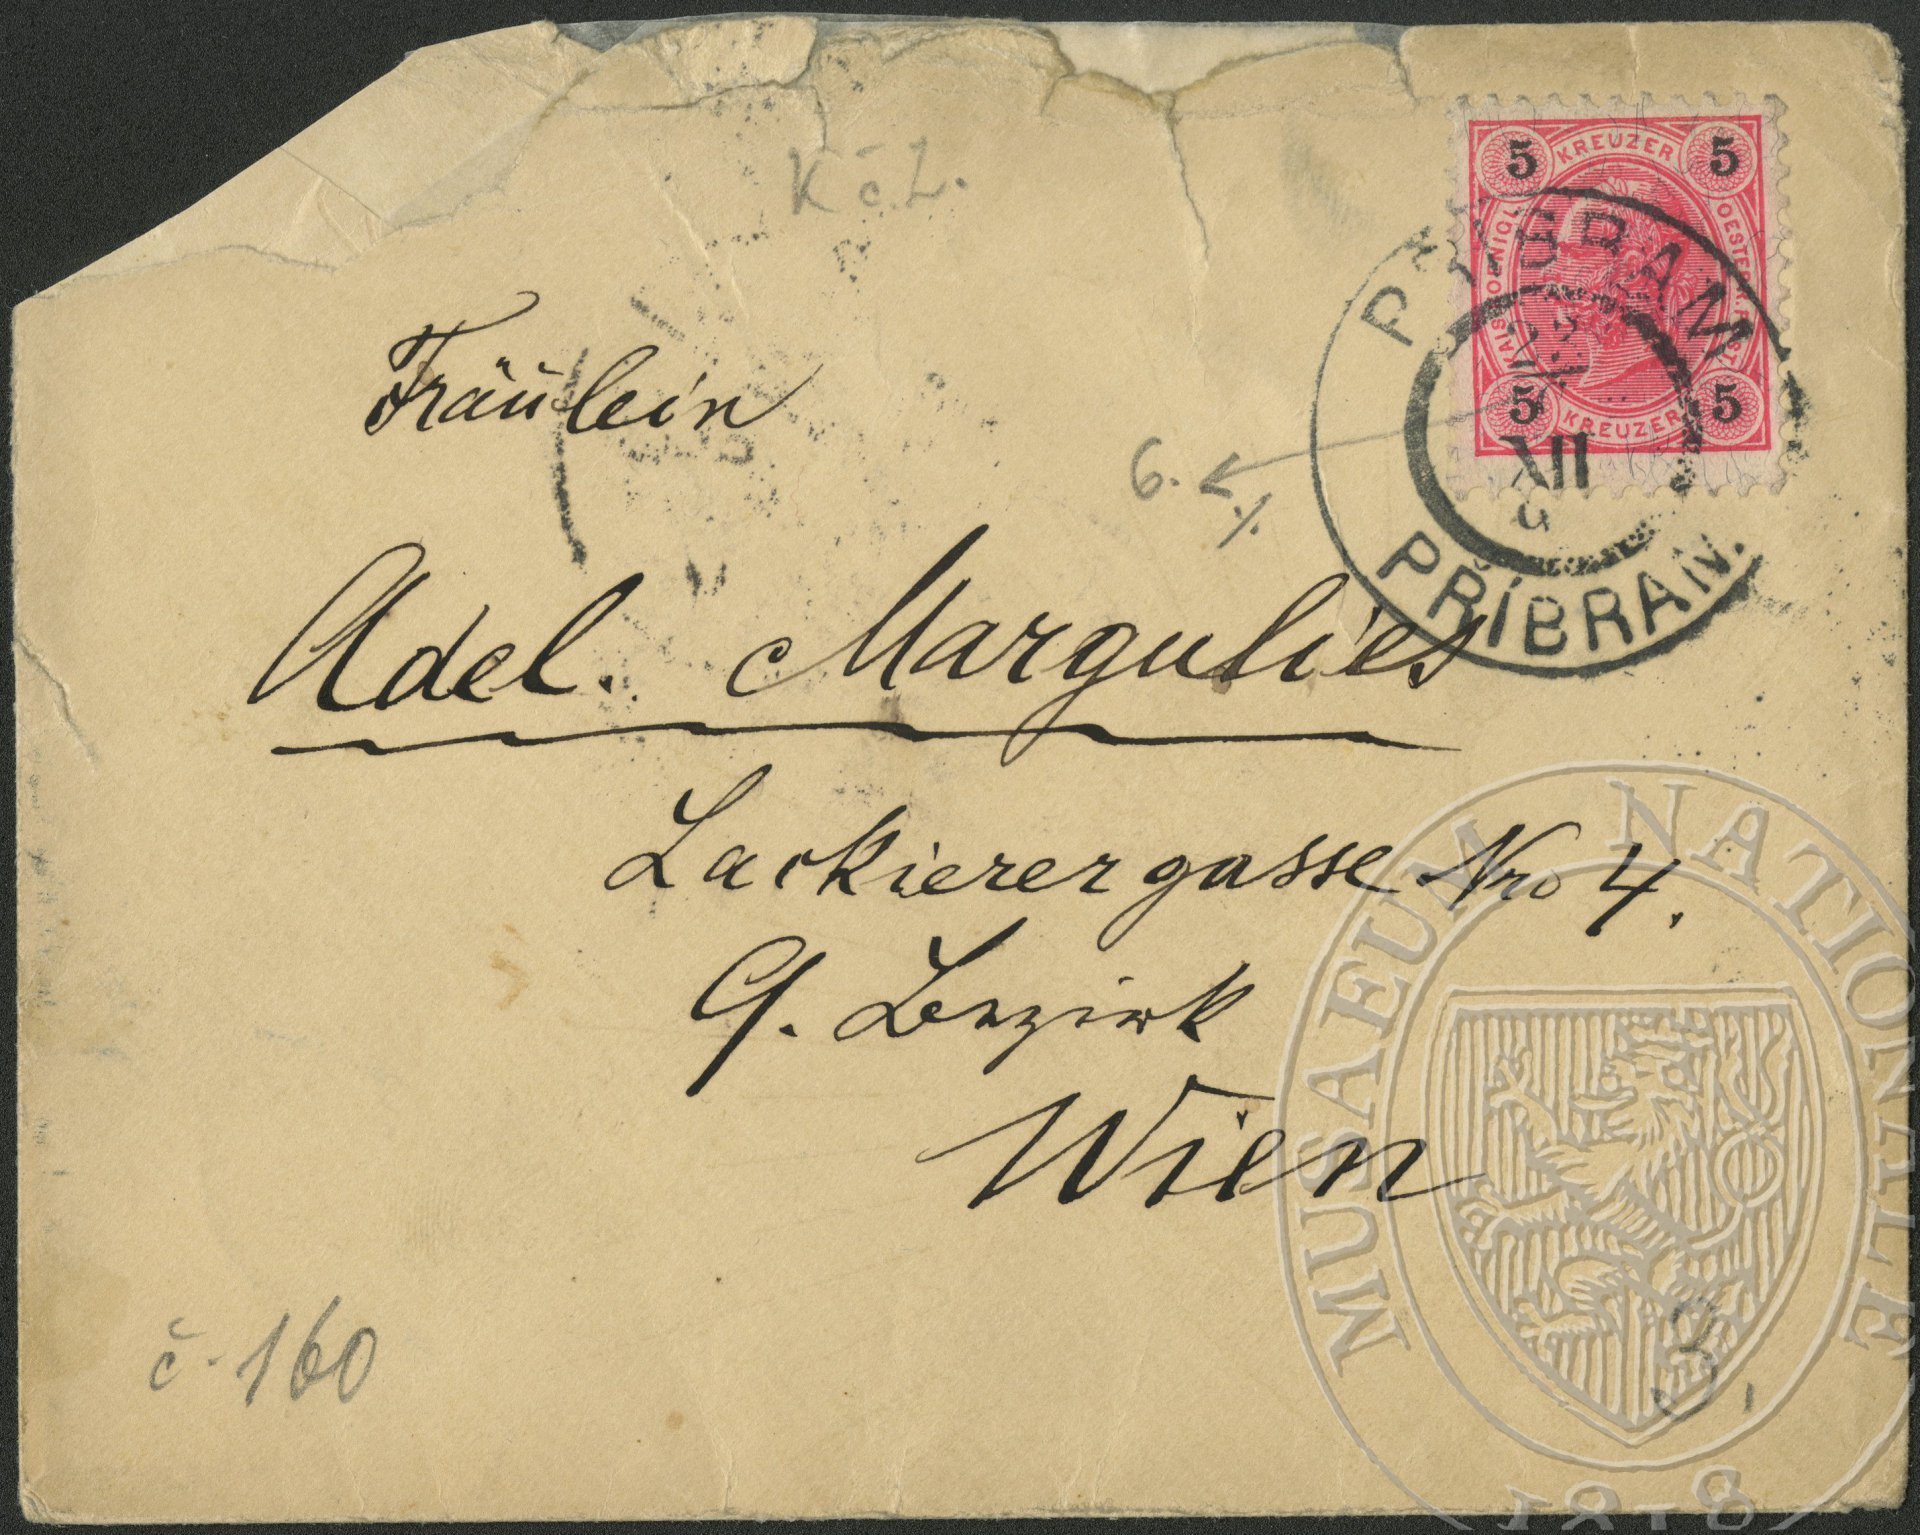 K č. L.
5 KREUZER 5
KAIS. KOENIGL. OESTERR. POST.
5 KREUZER 5
PŘIBRAM
XII
PŘÍBRAM.
6.
Fräulein
Adel. Margulies
Lackierergasse Nro 4.
9. Bezirk
Wien
č. 160
MUSAEUM NATIONALE
1818